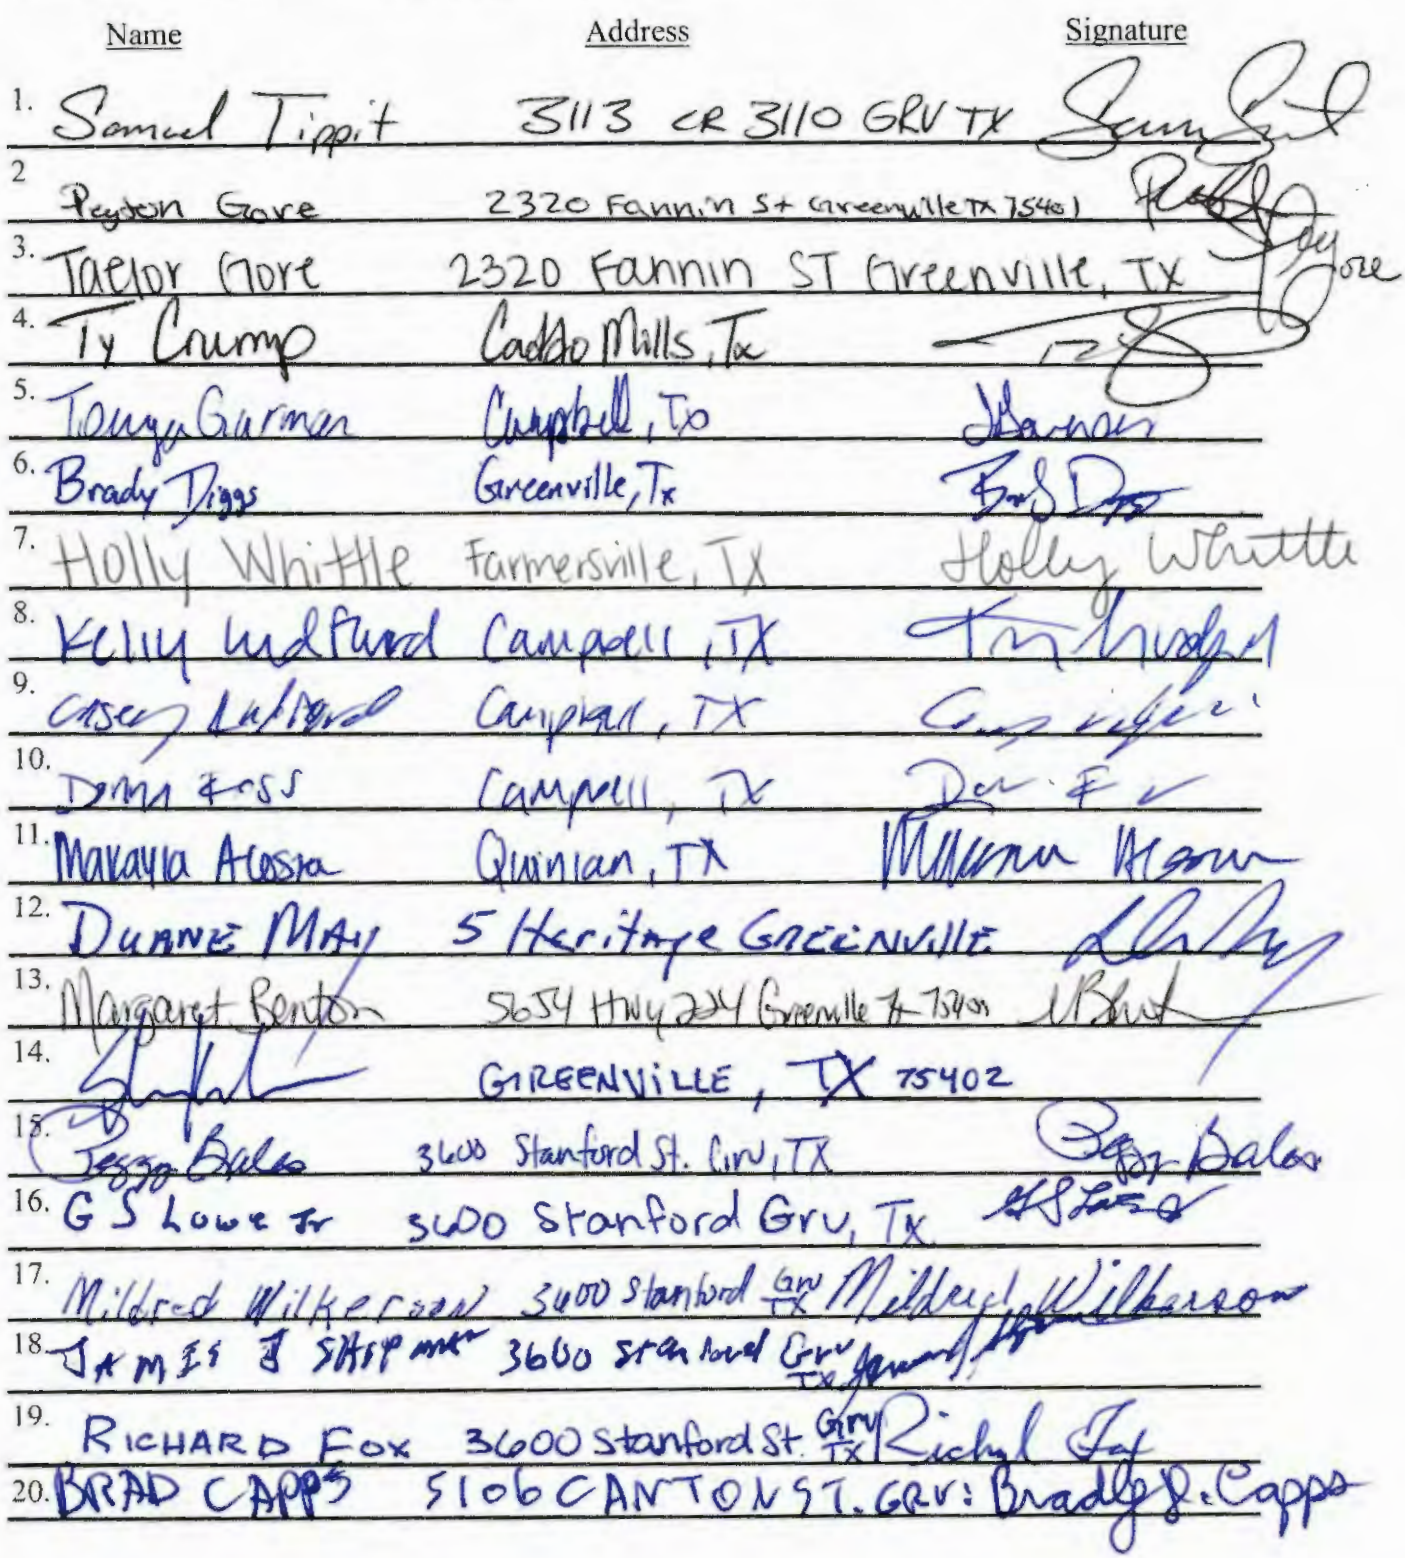 Name Address Signature
1. Samuel Tippit 3113 CR 3110 GRV TX
2 Peyton Gore 2320 Fannin St Greenville TX 75401
3. Taelor Gore 2320 Fannin ST Greenville, TX Gore
4. Ty Crump Caddo Mills, Tx
5. Tonya Garman Campbell, Tx
6. Brady Diggs Greenville, Tx
7. Holly Whittle Farmersville, TX Holly Whittle
8. Kelly Campbell, TX
9. Casey Campbell, TX
10. Campbell, TX
11. Makayla Acosta Quinlan, TX
12. DUANE MAY 5 Heritage GREENVILLE
13. Margaret Benton 5654 Hwy 224 Greenville Tx
14. GREENVILLE, TX 75402
15. Peggy Bales 3600 Stanford St. Grv, TX Peggy Bales
16. G S Lowe Jr 3600 Stanford Grv, Tx
17. Mildred Wilkerson 3600 Stanford Grv TX Mildred Wilkerson
18. JAMES J SHIPMAN 3600 Stanford Grv TX
19. RICHARD FOX 3600 Stanford St. Grv TX Richard Fox
20. BRAD CAPPS 5106 CANTON ST. GRV: Bradley J. Capps